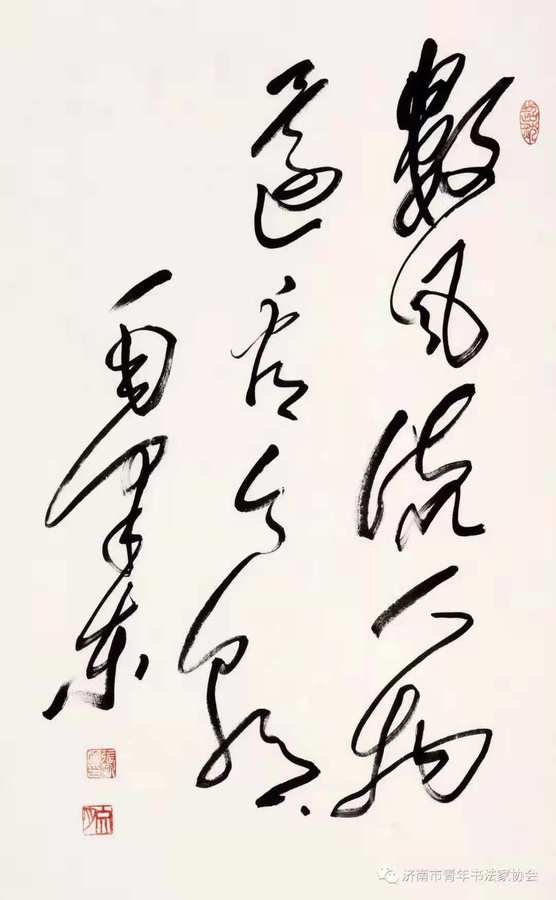 数风流人物
还看今朝
毛泽东
济南市青年书法家协会